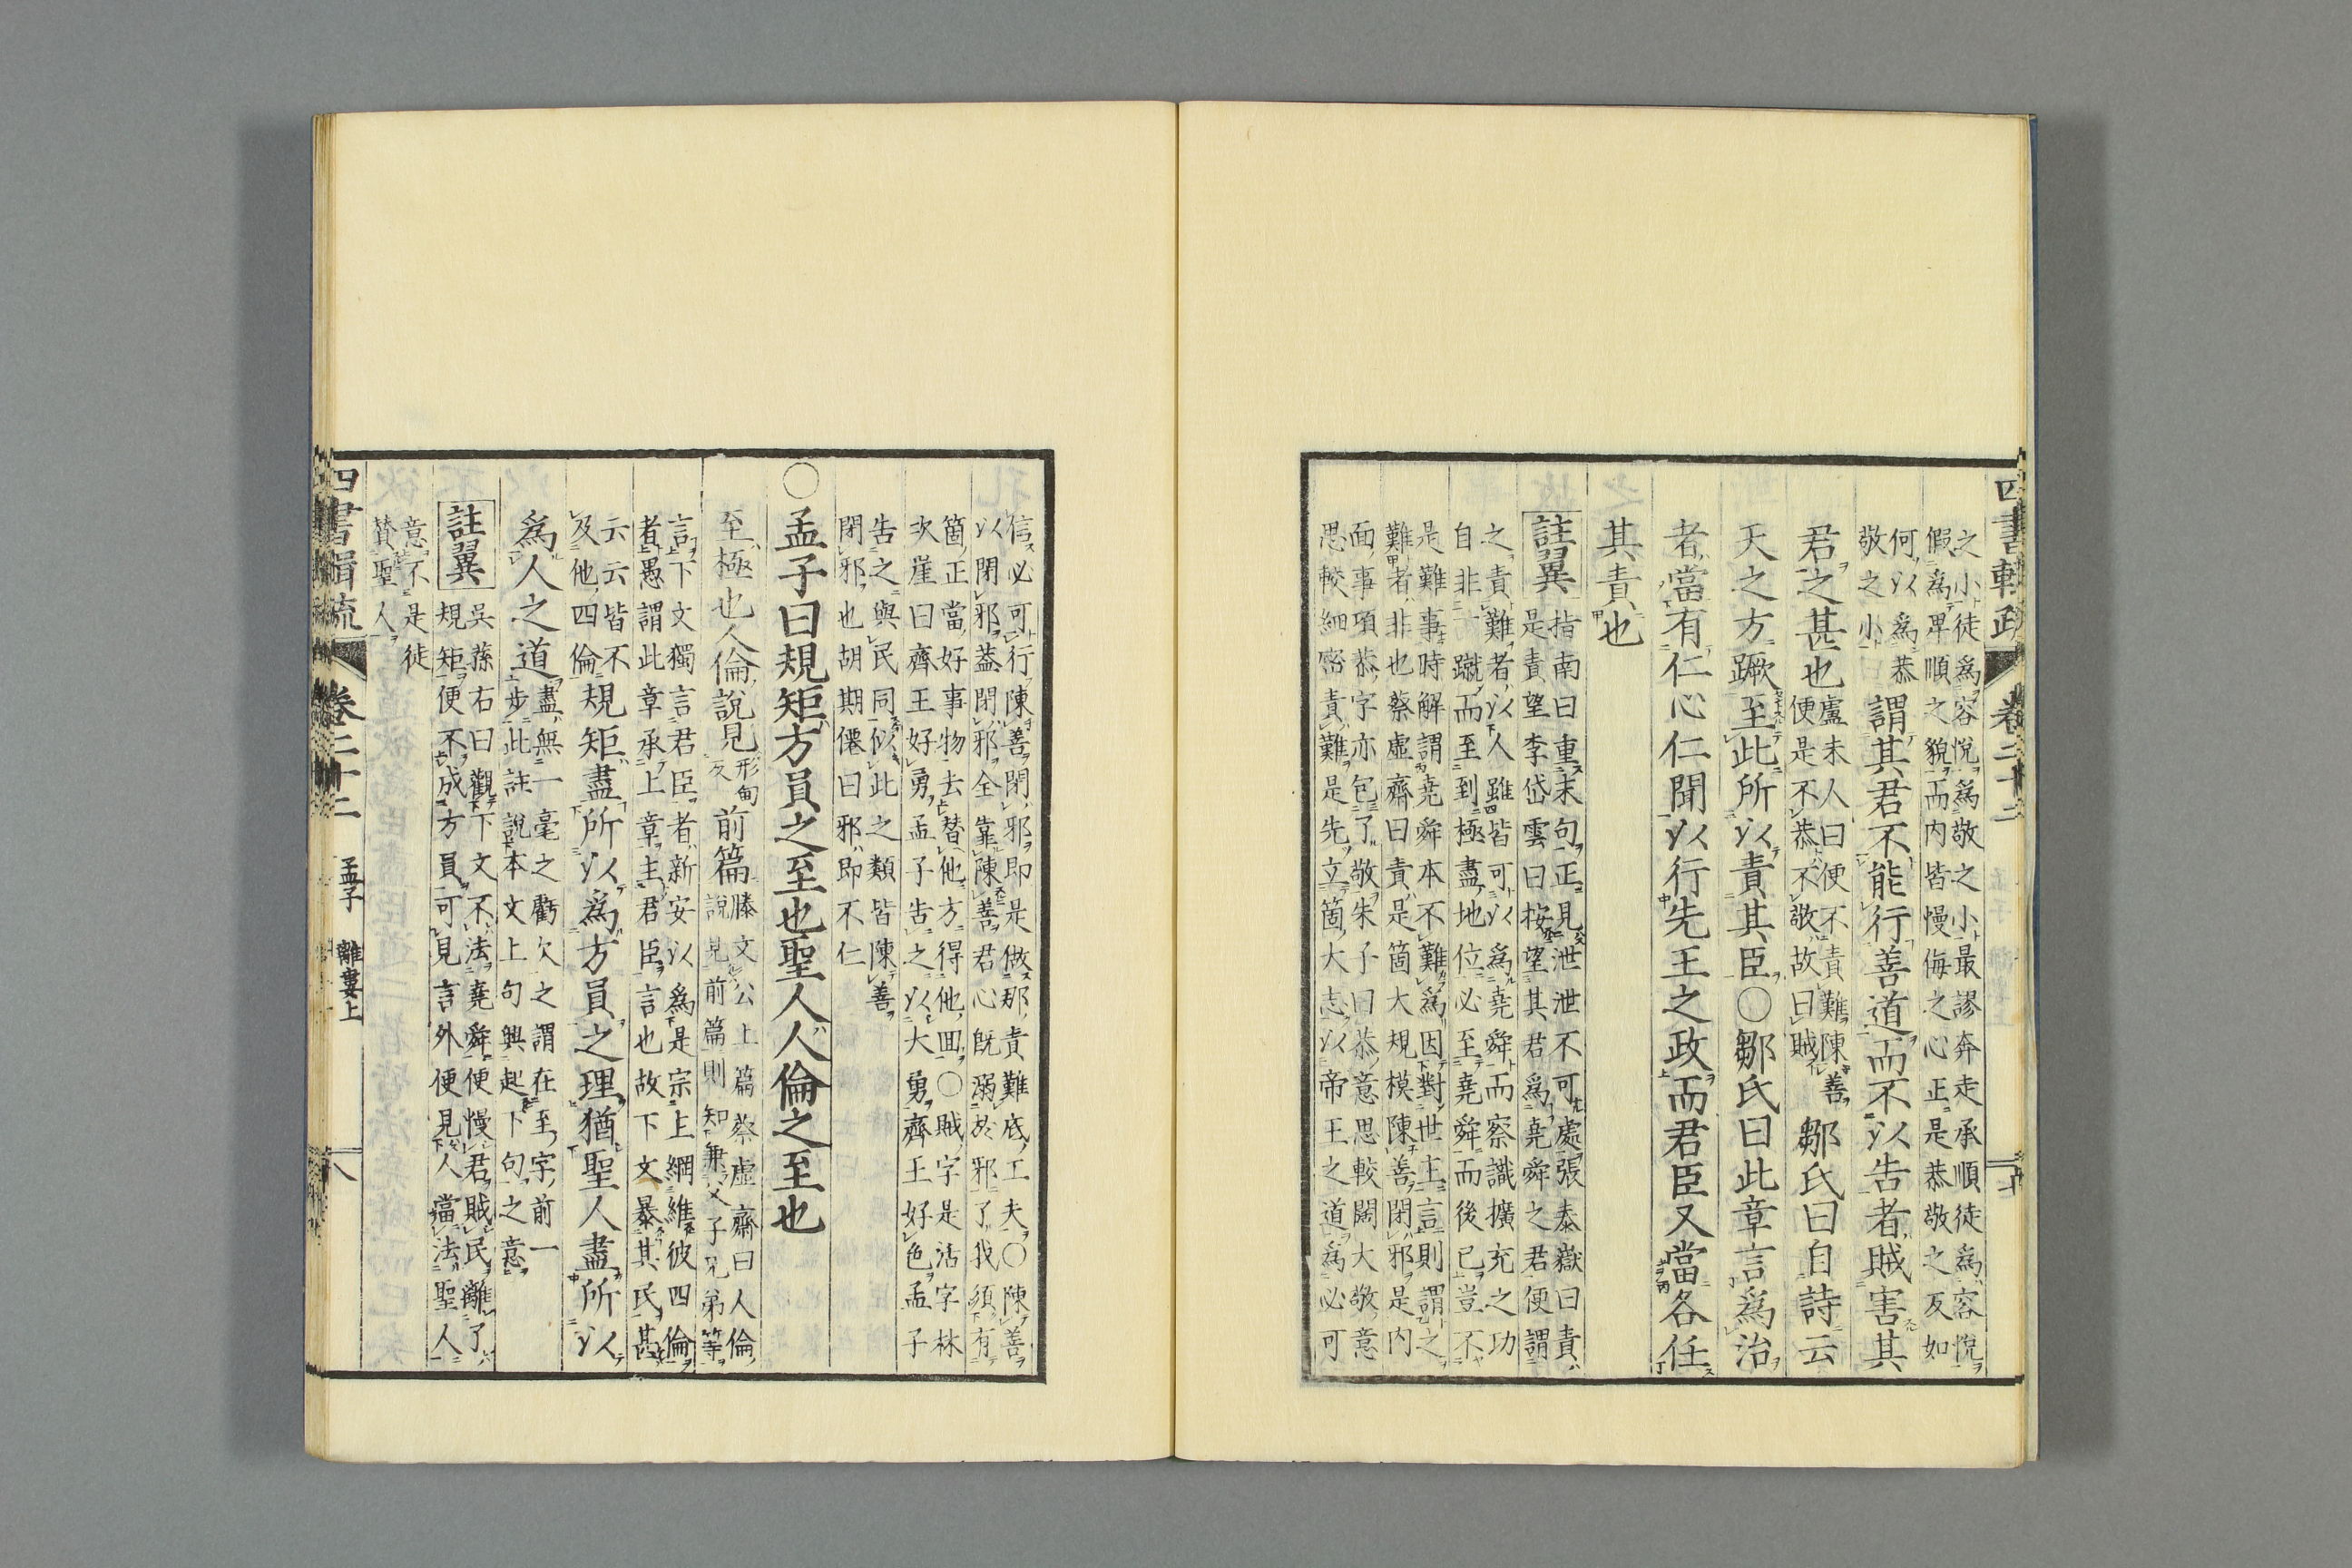 四書輯疏 卷二十二
之小徒爲容悅爲敬之小最謬奔走承順徒爲容悅
假爲卑順之貌而内皆慢侮之心正是恭敬之反如
何以爲恭
敬之小
謂其君不能行善道而不以告者賊害其
君之甚也
盧未人曰便不責難陳善
便是不恭不敬故曰賊
鄒氏曰自詩云
天之方蹶至此所以責其臣○鄒氏曰此章言爲治
者當有仁心仁聞以行先王之政而君臣又當各任
其責也
註翼
指南曰重末句正見泄泄不可處張泰嶽曰責
是責望李岱雲曰按望其君爲堯舜之君便謂
之責難者以人雖皆可以爲堯舜而察識擴充之功
自非一蹴而至到極盡地位必至堯舜而後已豈不
是難事時解謂堯舜本不難爲因對世主言則謂之
難者非也蔡虛齊曰責是箇大規模陳善閉邪是内
面事項恭字亦包了敬朱子曰恭意思較闊大敬意
思較細密責難是先立箇大志以帝王之道爲必可
信必可行陳善閉邪即是做那責難底工夫○陳善
以閉邪蓋閉邪全靠陳善君心既溺於邪了我須有
箇正當好事物去替他方得他回○賊字是活字林
次崖曰齊王好勇孟子告之以大勇齊王好色孟子
告之與民同似此之類皆陳善
閉邪也胡期僊曰邪即不仁
○孟子曰規矩方員之至也聖人人倫之至也
至極也人倫說見
形甸
反
前篇
滕文公上篇蔡虛齋曰人倫
說見前篇則知兼父子兄弟等
言下文獨言君臣者新安以爲是宗上綱維彼四倫
者愚謂此章承上章主君臣言也故下文暴其民甚
云云皆不
及他四倫
規矩盡所以爲方員之理猶聖人盡所以
爲人之道
盡無一毫之虧欠之謂在至字前一
步此註說本文上句興起下句之意
註翼
吳蓀右曰觀下文不法堯舜便慢君賊民離了
規矩便不成方員可見言外便見人當法聖人
意不是徒
贊聖人
四書輯疏 卷二十二 孟子 離婁上 八